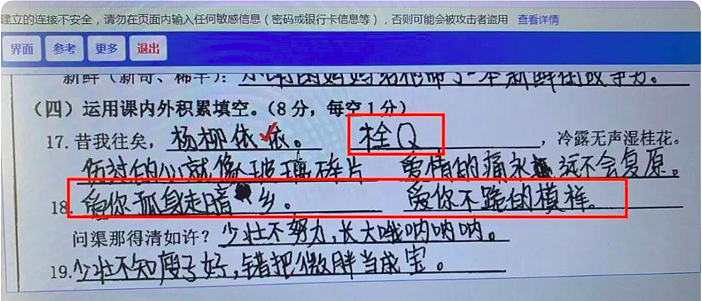 建立的连接不安全，请勿在页面内输入任何敏感信息（密码或银行卡信息等），否则可能会被攻击者盗用 查看详情
界面 参考 更多 退出
新鲜（新奇、稀罕）：
（四）运用课内外积累填空。（8分，每空1分）
17. 昔我往矣，杨柳依依。 栓Q ，冷露无声湿桂花。
伤过的心就像玻璃碎片 爱情的痛永远不会复原。
18. 爱你孤身走暗乡。 爱你不跪的模样。
问渠那得清如许？少壮不努力，长大哦呐呐呐。
19. 少壮不知瘦子好，错把微胖当成宝。